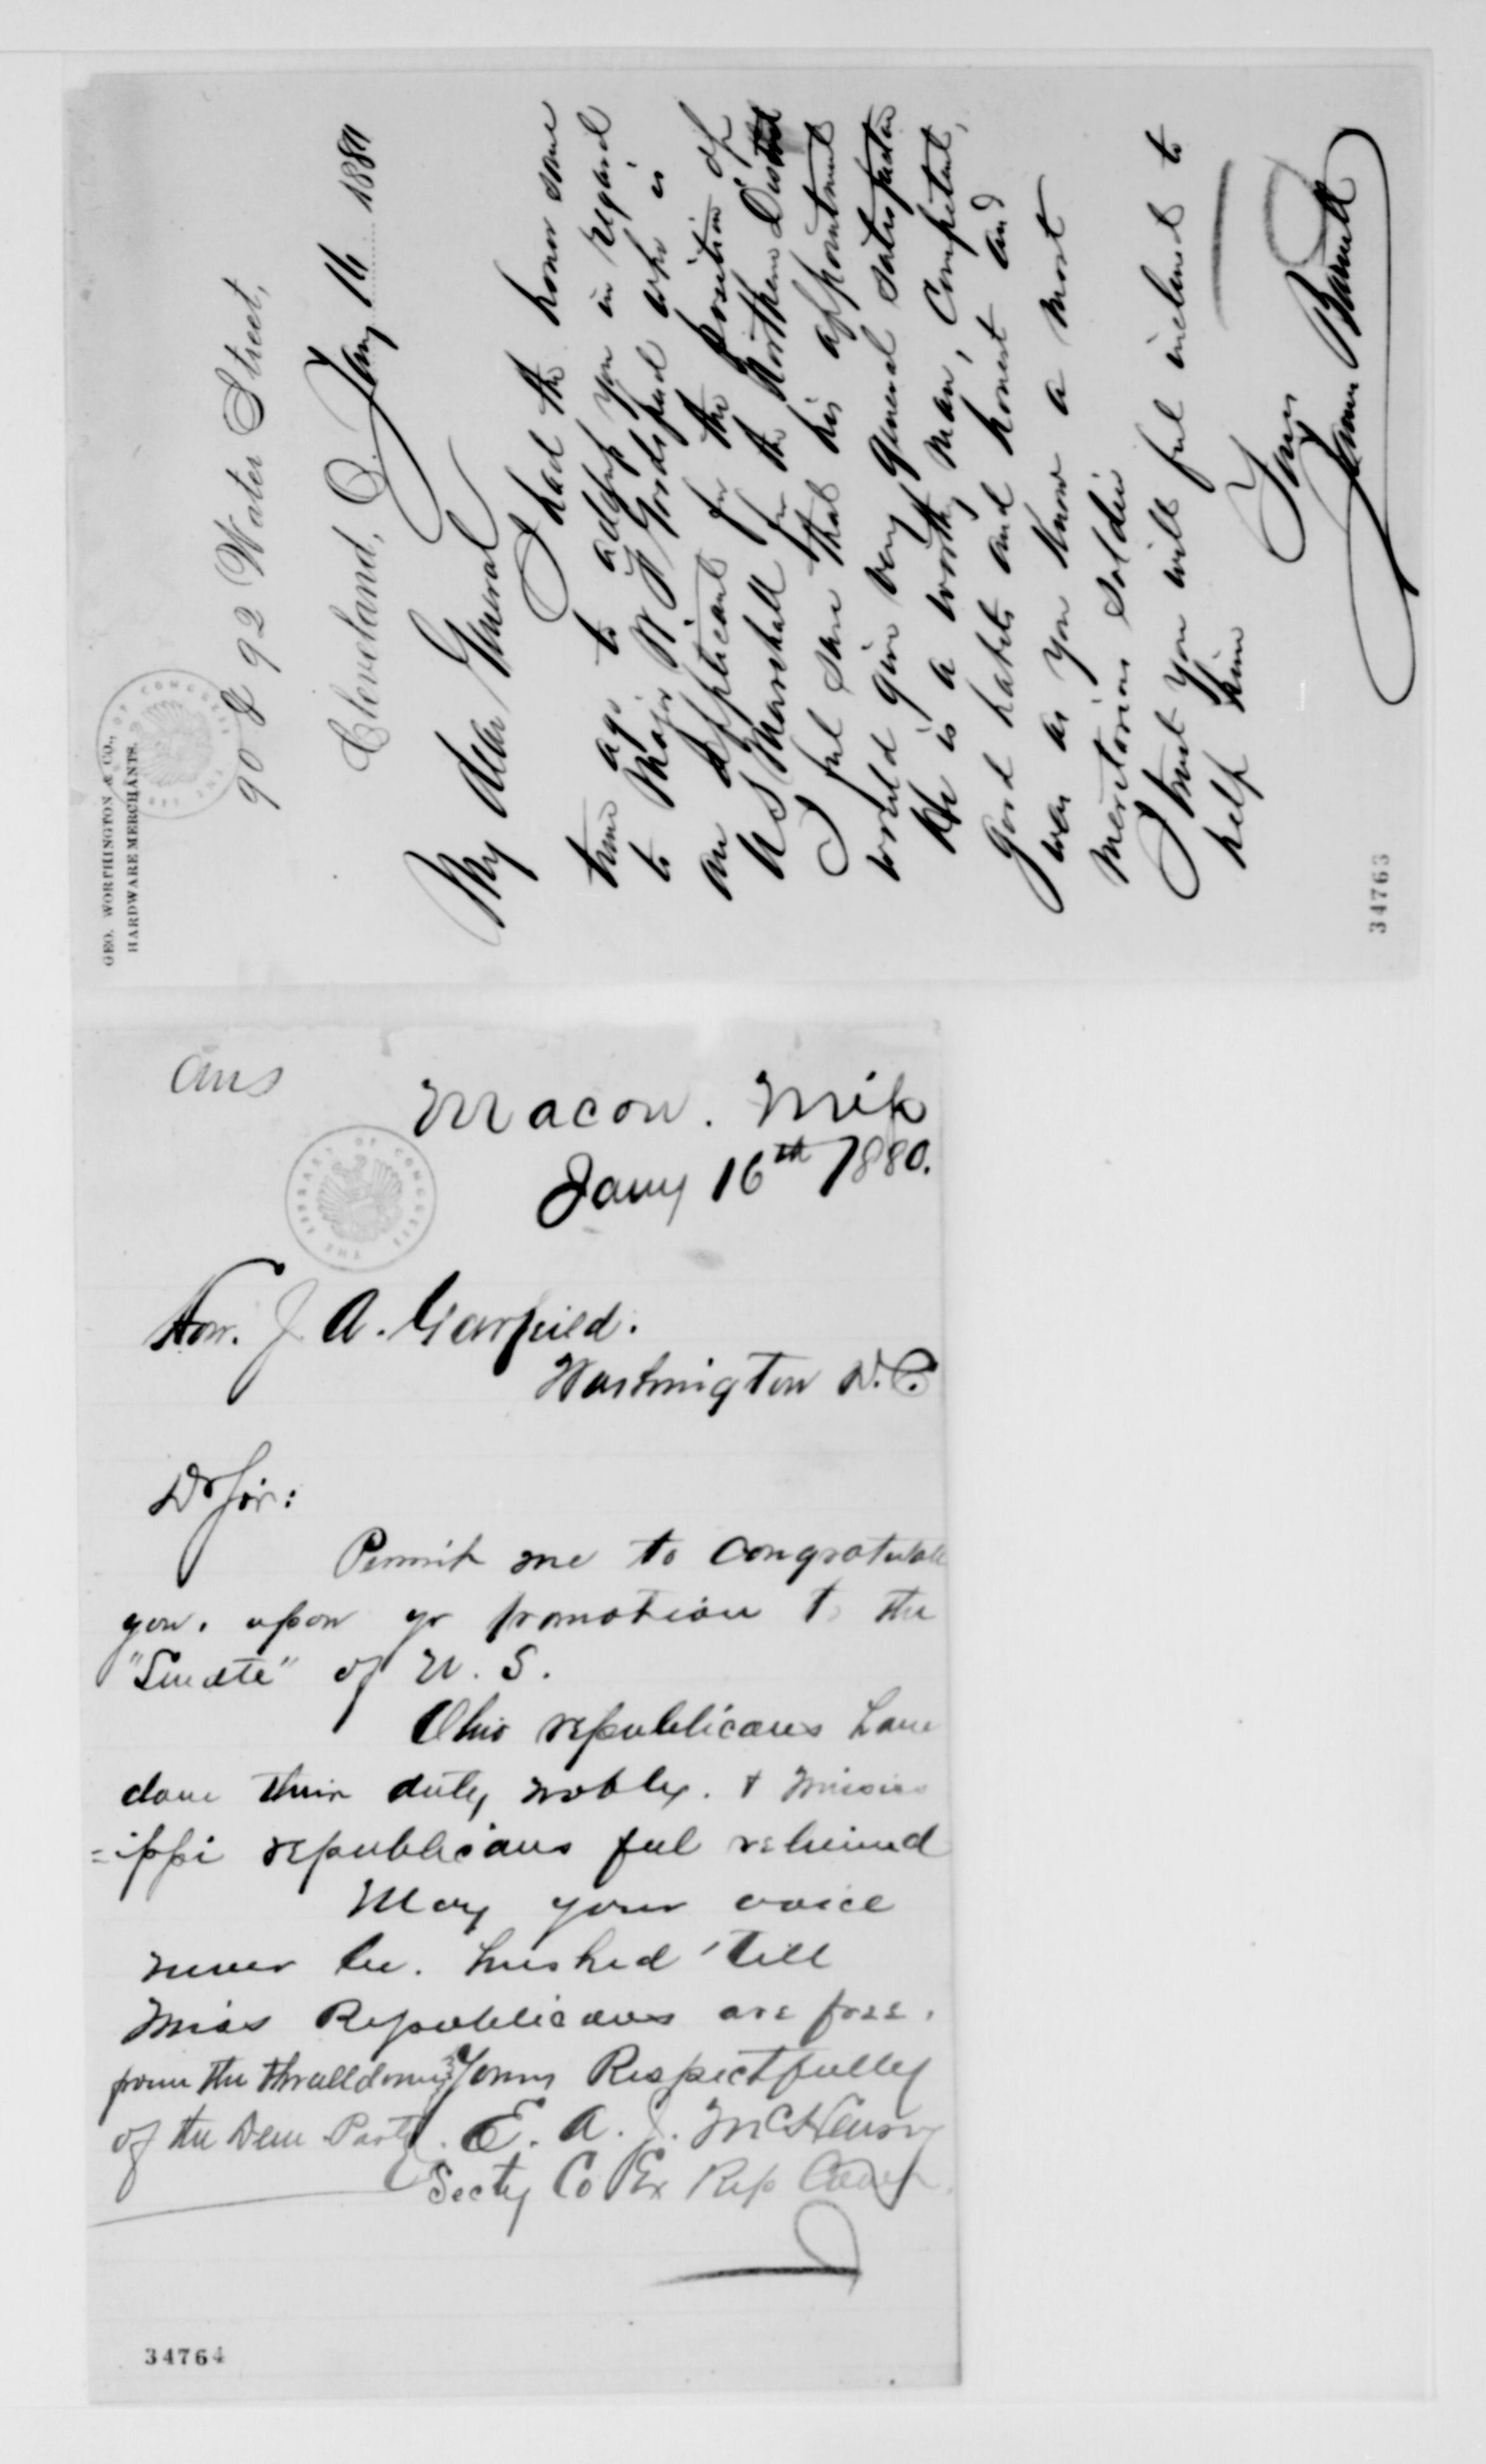 GEO. WORTHINGTON & CO.,
HARDWARE MERCHANTS.
90 & 92 Water Street,
Cleveland, O. Jany 16 1880
My dear General
I had the honor some
time ago to address you in regard
to Major W G Goodspeed who is
an applicant for the position of
U S Marshall for the Northern District
I feel sure that his appointment
would give very general satisfaction
He is a worthy man, competent,
good habits and honest and
was as you know a most
meritorious soldier
I trust you will feel inclined to
help him
Yours
James Barnett
34763
Ans
Macon. Miss
Jany 16th 1880.
Hon. J. A. Garfield.
Washington D.C.
Dr Sir:
Permit me to congratulate
you. upon yr promotion to the
"Senate" of U. S.
Ohio republicans have
done their duty nobly. & Mississ
=ippi republicans feel relieved
May your voice
never be. hushed 'till
Miss Republicans are free.
from the thralldom
of the Dem Party.
Yours Respectfully
E. A. J. McHenry
Secty Co Ex Rep Com
34764
THE LIBRARY OF CONGRESS